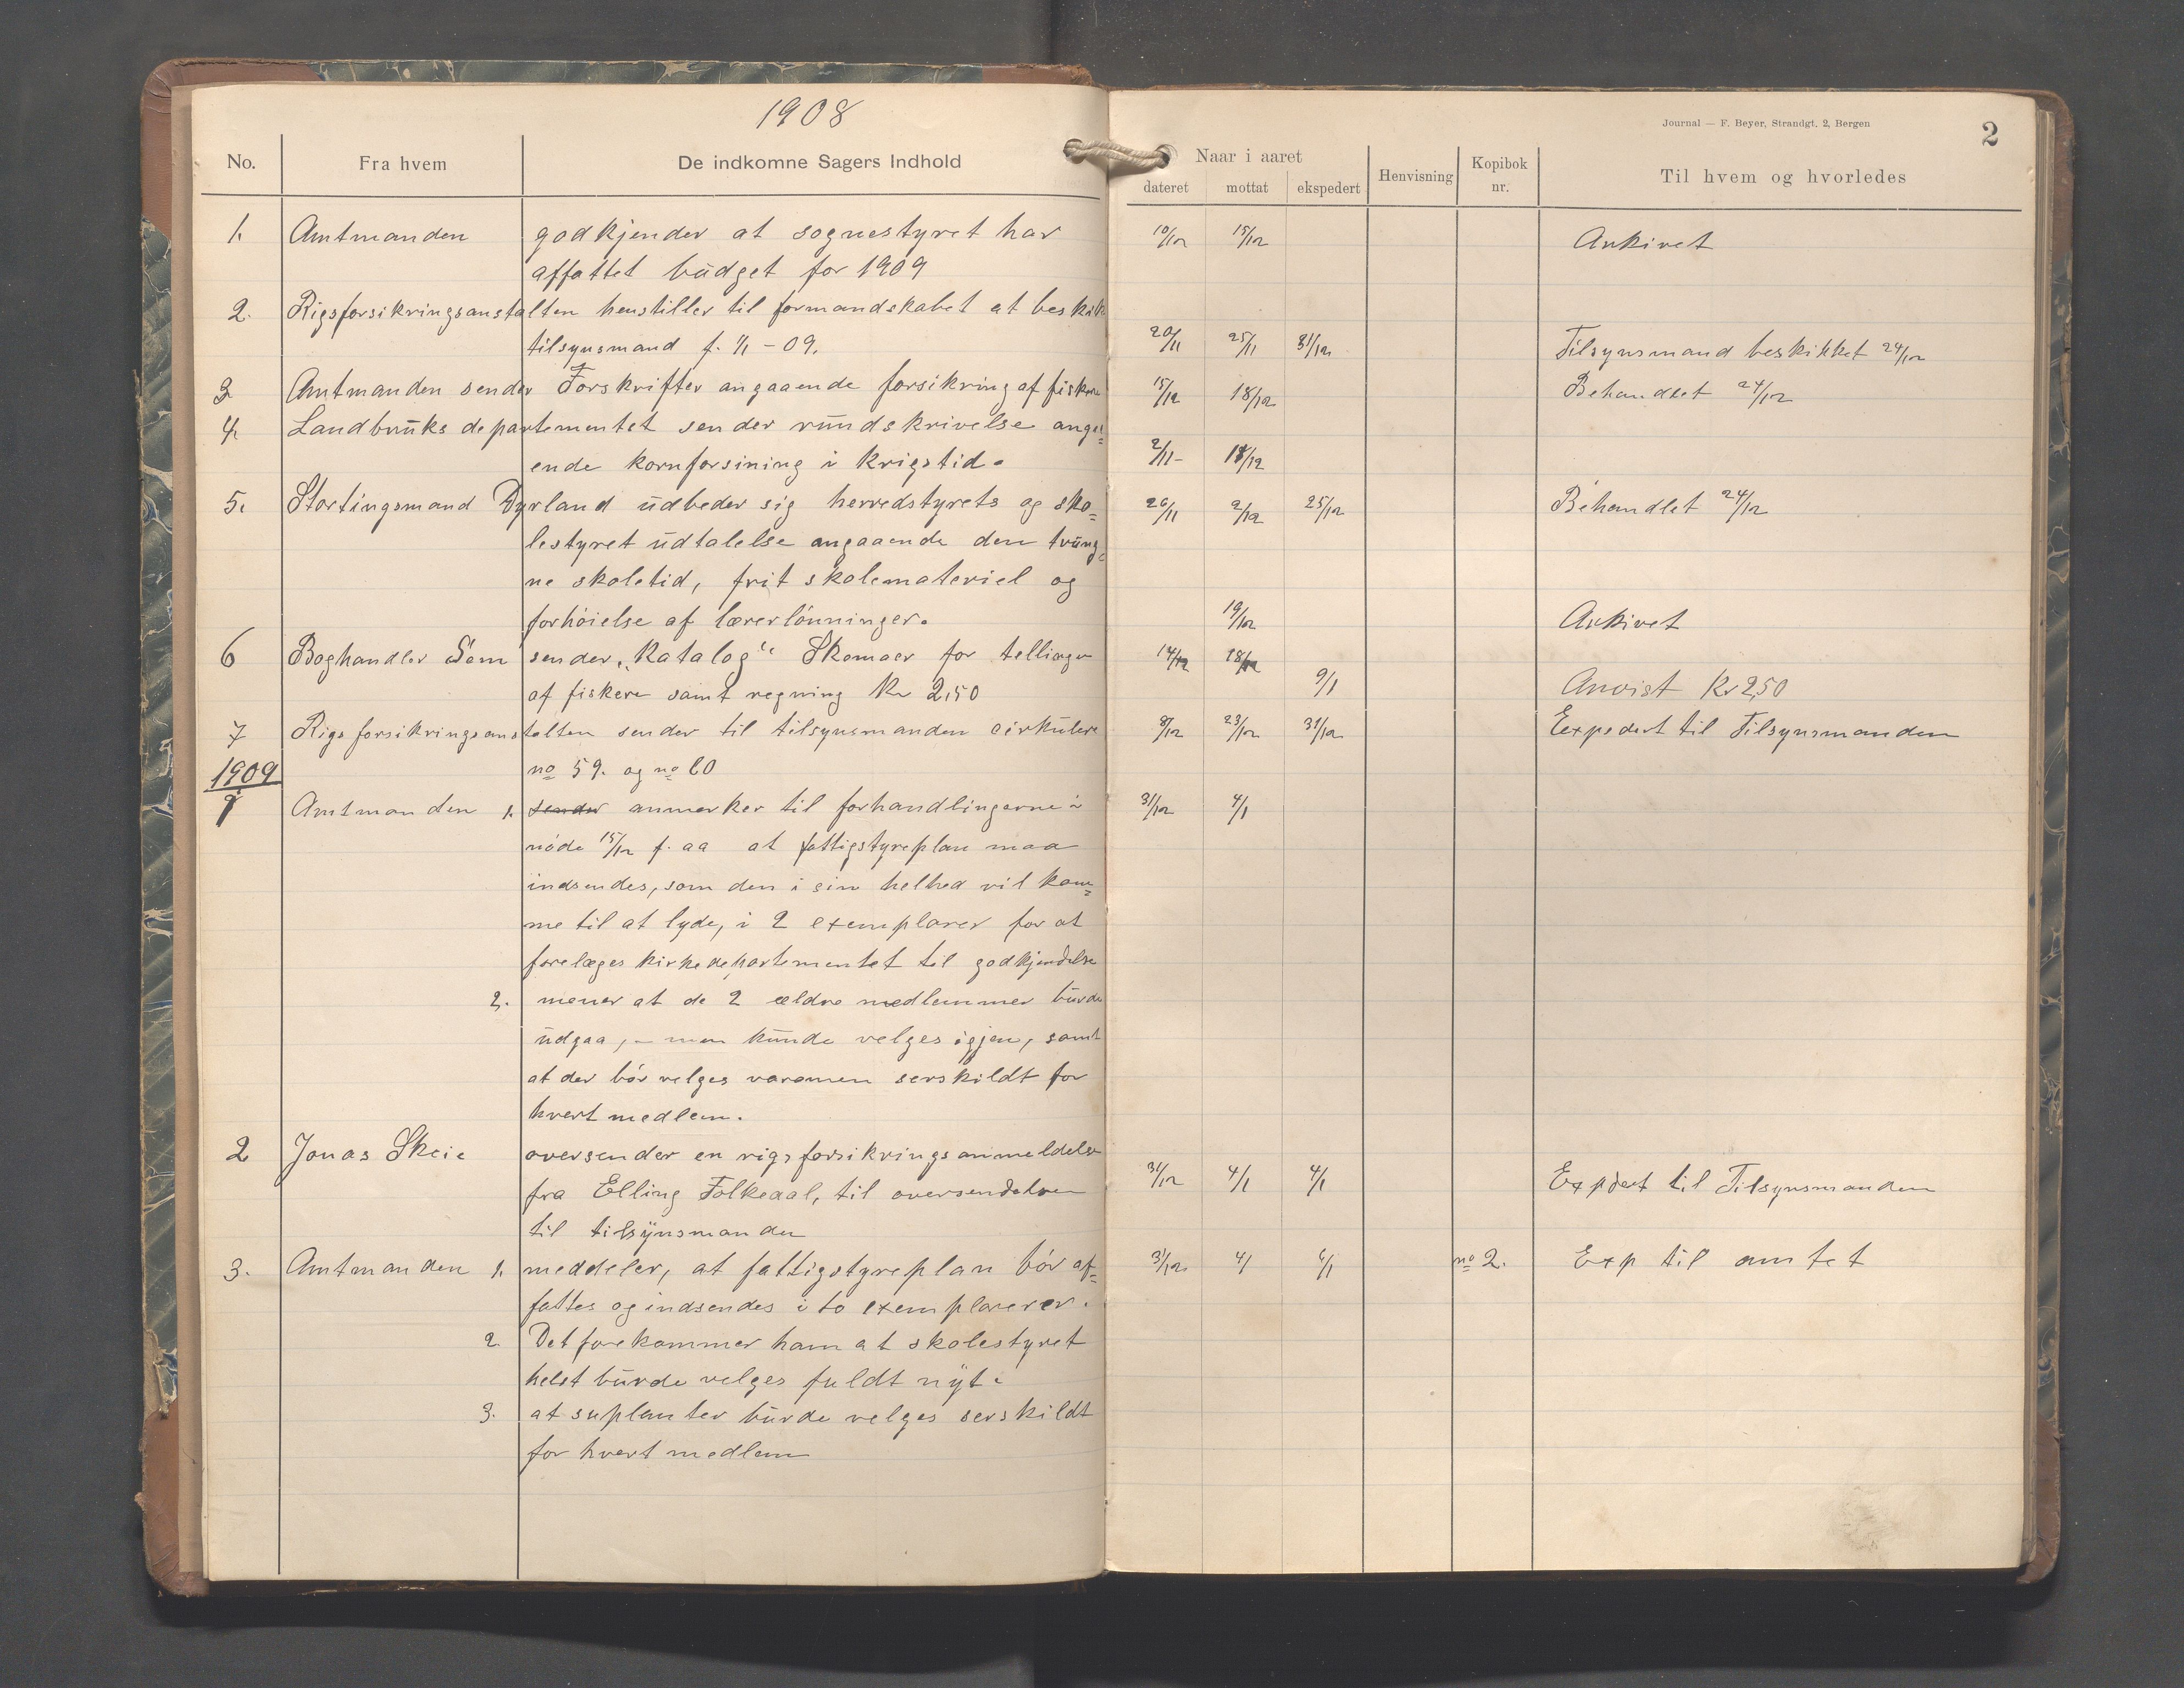 1908
No. Fra hvem De indkomne Sagers Indhold
1. Amtmanden godkjender at sognestyret har
affattet budget for 1909
2. Rigsforsikringsanstalten henstiller til formandskabet at beskik
tilsynsmand f. 1/1 - 09.
3 Amtmanden sender Forskrifter angaaende forsikring af fiskere
4. Landbruksdepartementet sender rundskrivelse anga=
ende kornforsining i krigstid.
5. Stortingsmand Dyrland udbeder sig herredstyrets og sko=
lestyret udtalelse angaaende den tvung=
ne skoletid, frit skolemateriel og
forhöielse af lærerlönninger.
6 Boghandler Sem sender „Katalog“ Skemaer for tellinger
af fiskere samt regning Kr 2,50
7 Rigsforsikringsanstalten sender til tilsynsmanden cirkulere
no 59. og no 60
1909
1 Amtmanden 1. sender anmerker til forhandlingerne i
möde 15/12 f. aa at fattigstyreplan maa
indsendes, som den i sin helhed vil kom=
me til at lyde, i 2 exemplarer for at
forelæges kirkedepartementet til godkjendelse
2. mener at de 2 ældre medlemmer burde
udgaa, - men kunde velges igjen, samt
at der bör velges varamen serskildt for
hvert medlem.
2 Jonas Skeie oversender en rigsforsikringsanmeldelse
fra Elling Folkeaal, til oversendelsen
til tilsynsmanden
3. Amtmanden 1. meddeler, at fattigstyreplan bör af=
fattes og indsendes i to exemplarerer.
2 Det forekommer ham at skolestyret
helst burde velges fuldt nyt.
3. at suplanter burde velges serskildt
for hvert medlem
Journal — F. Beyer, Strandgt. 2, Bergen
2
Naar i aaret
dateret mottat ekspedert Henvisning Kopibok nr. Til hvem og hvorledes
10/12 15/12 Arkivet
20/11 25/11 31/12 Tilsynsmand beskikket 24/12
15/12 18/12 Behandlet 24/12
2/11- 18/12
26/11 2/12 25/12 Behandlet 24/12
19/12 Arkivet
14/12 18/12
9/1 Anvist Kr 2,50
8/12 23/12 31/12 Expedert til Tilsynsmanden
31/12 4/1
31/12 4/1 4/1 Expdert til Tilsynsmanden
31/12 4/ 6/1 no 2. Exp til amtet